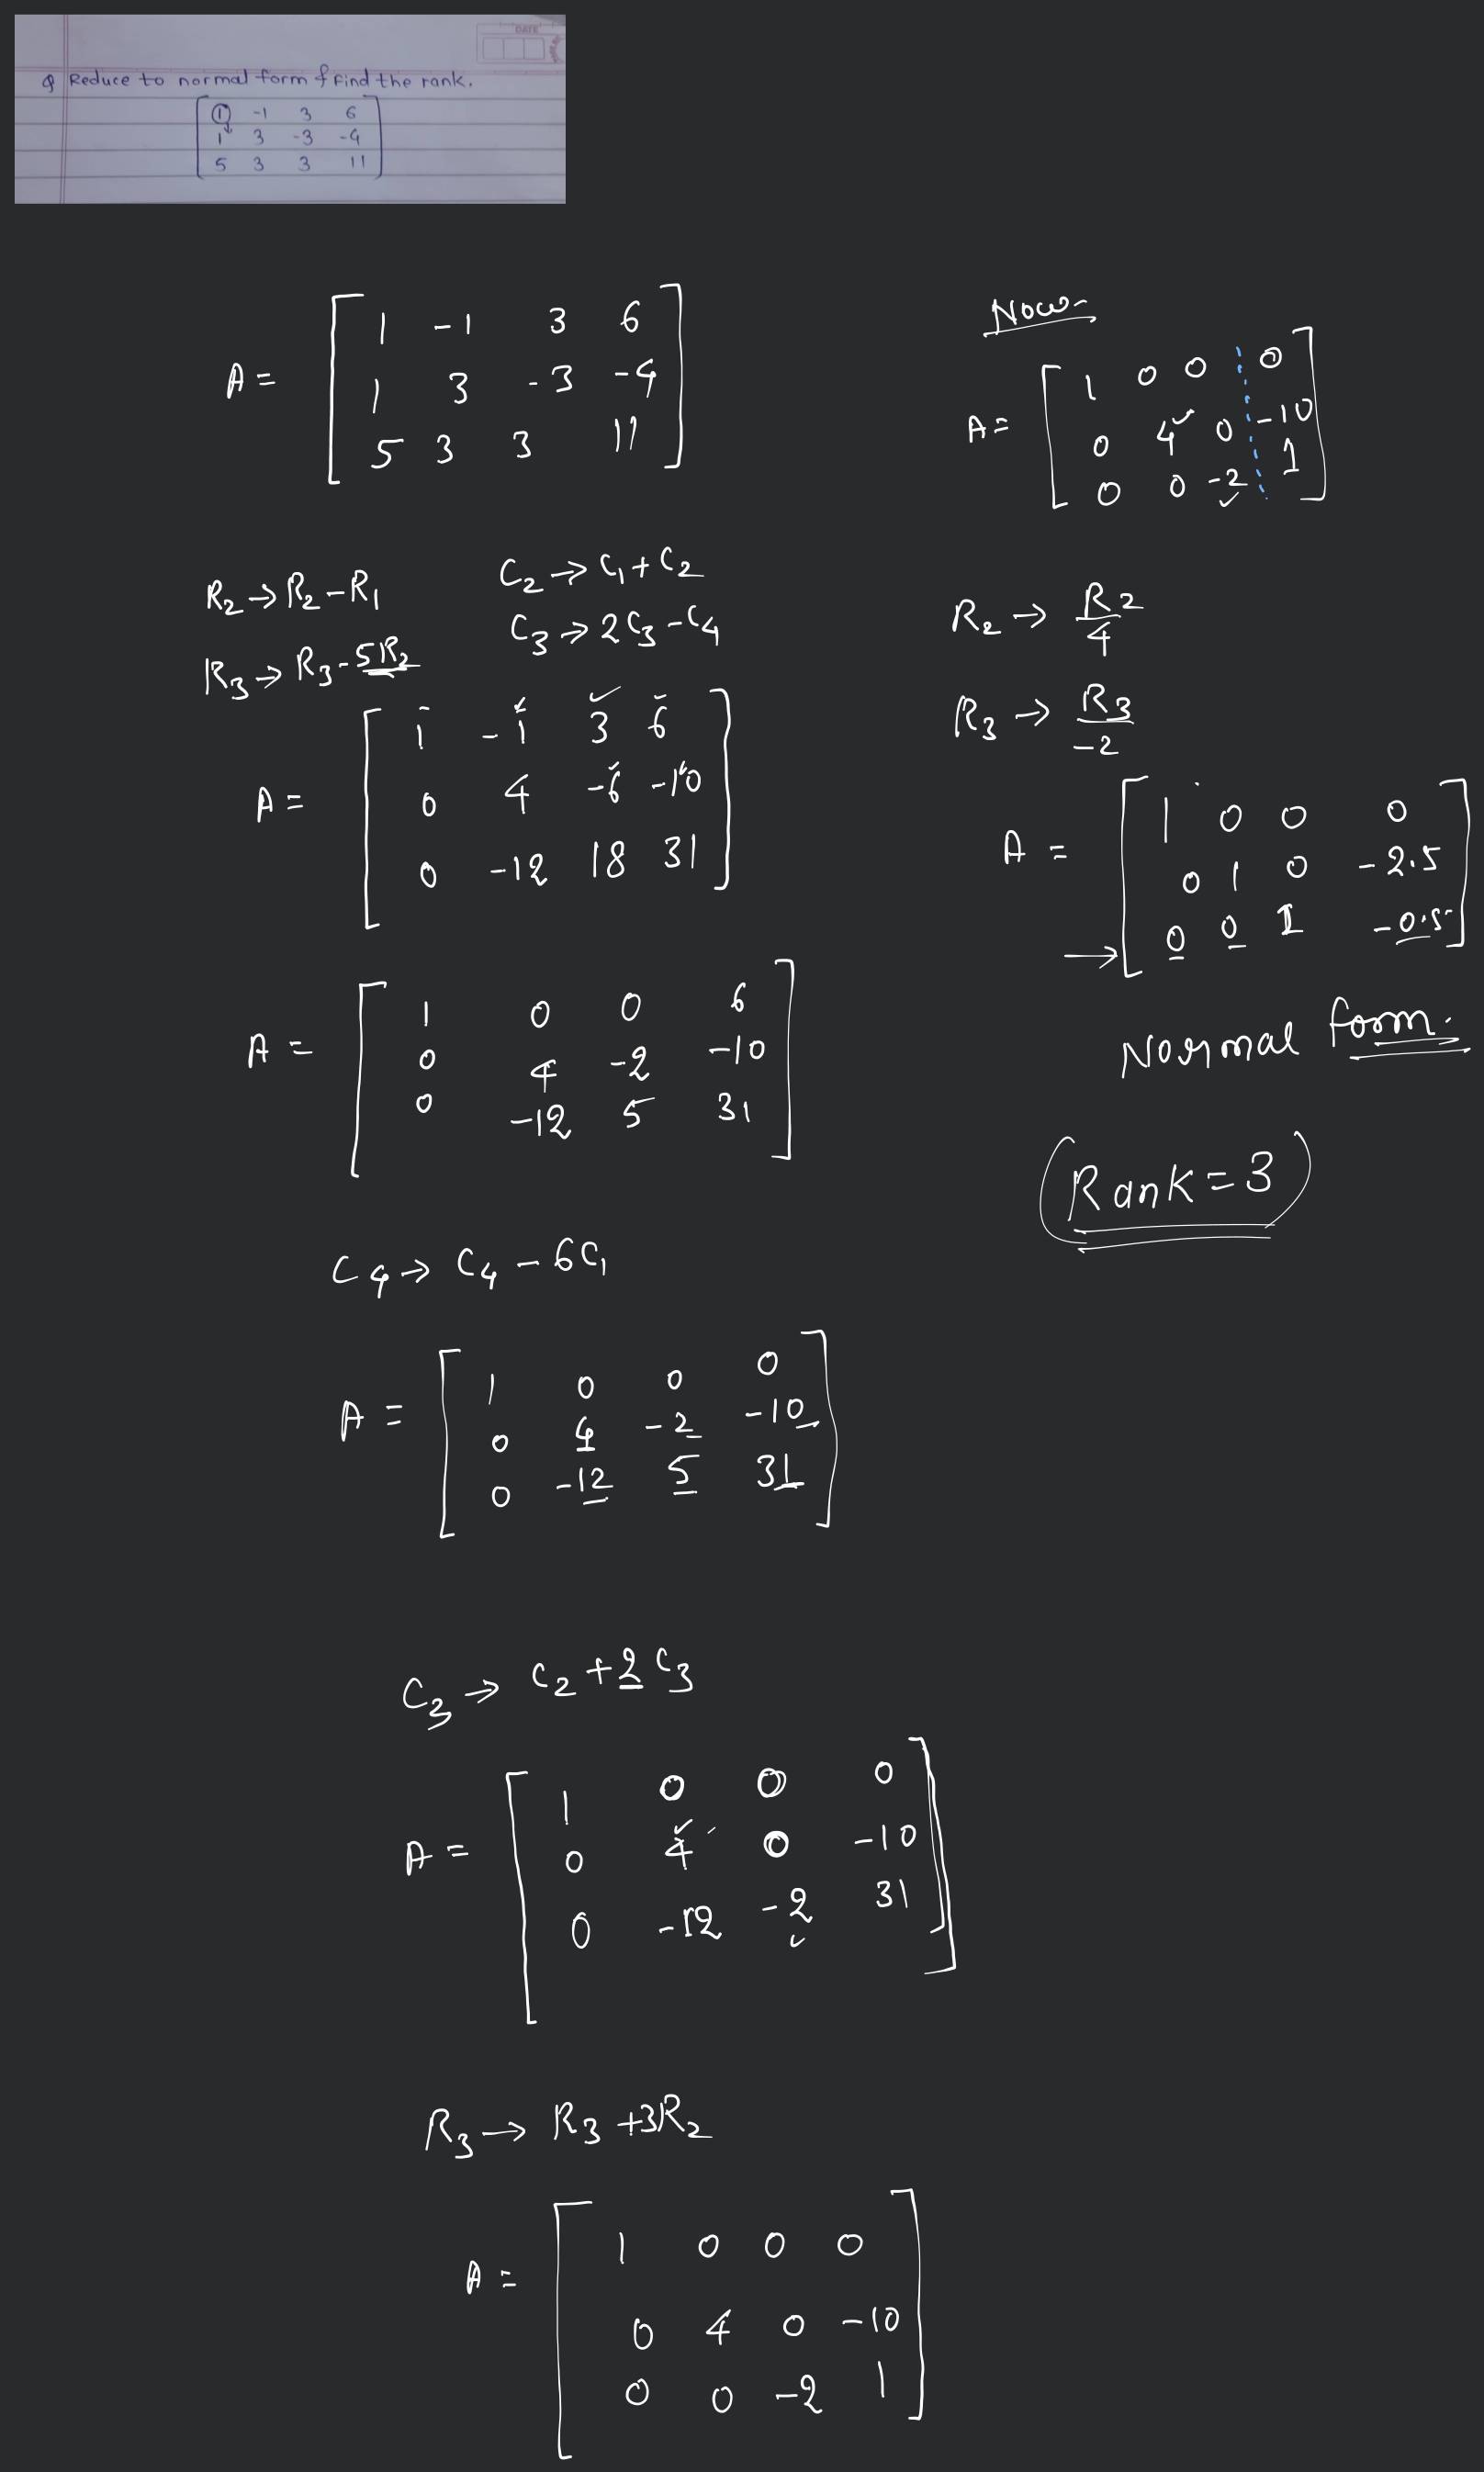 DATE
Q Reduce to normal form & Find the rank.
1 -1 3 6
1 3 -3 -4
5 3 3 11
A = 1 -1 3 6
1 3 -3 -4
5 3 3 11
R2 → R2 - R1 C2 → C1 + C2
R3 → R3 - 5R2 C3 → 2C3 - C4
A = 1 -1 3 6
0 4 -6 -10
0 -12 18 31
A = 1 0 0 6
0 4 -2 -10
0 -12 5 31
C4 → C4 - 6C1
A = 1 0 0 0
0 4 -2 -10
0 -12 5 31
C3 → C2 + 2C3
A = 1 0 0 0
0 4 0 -10
0 -12 -2 31
R3 → R3 + 3R2
A = 1 0 0 0
0 4 0 -10
0 0 -2 1
Now-
A = 1 0 0 0
0 4 0 -10
0 0 -2 1
R2 → R2/4
R3 → R3/-2
A = 1 0 0 0
0 1 0 -2.5
→ 0 0 1 -0.5
Normal form.
(Rank = 3)